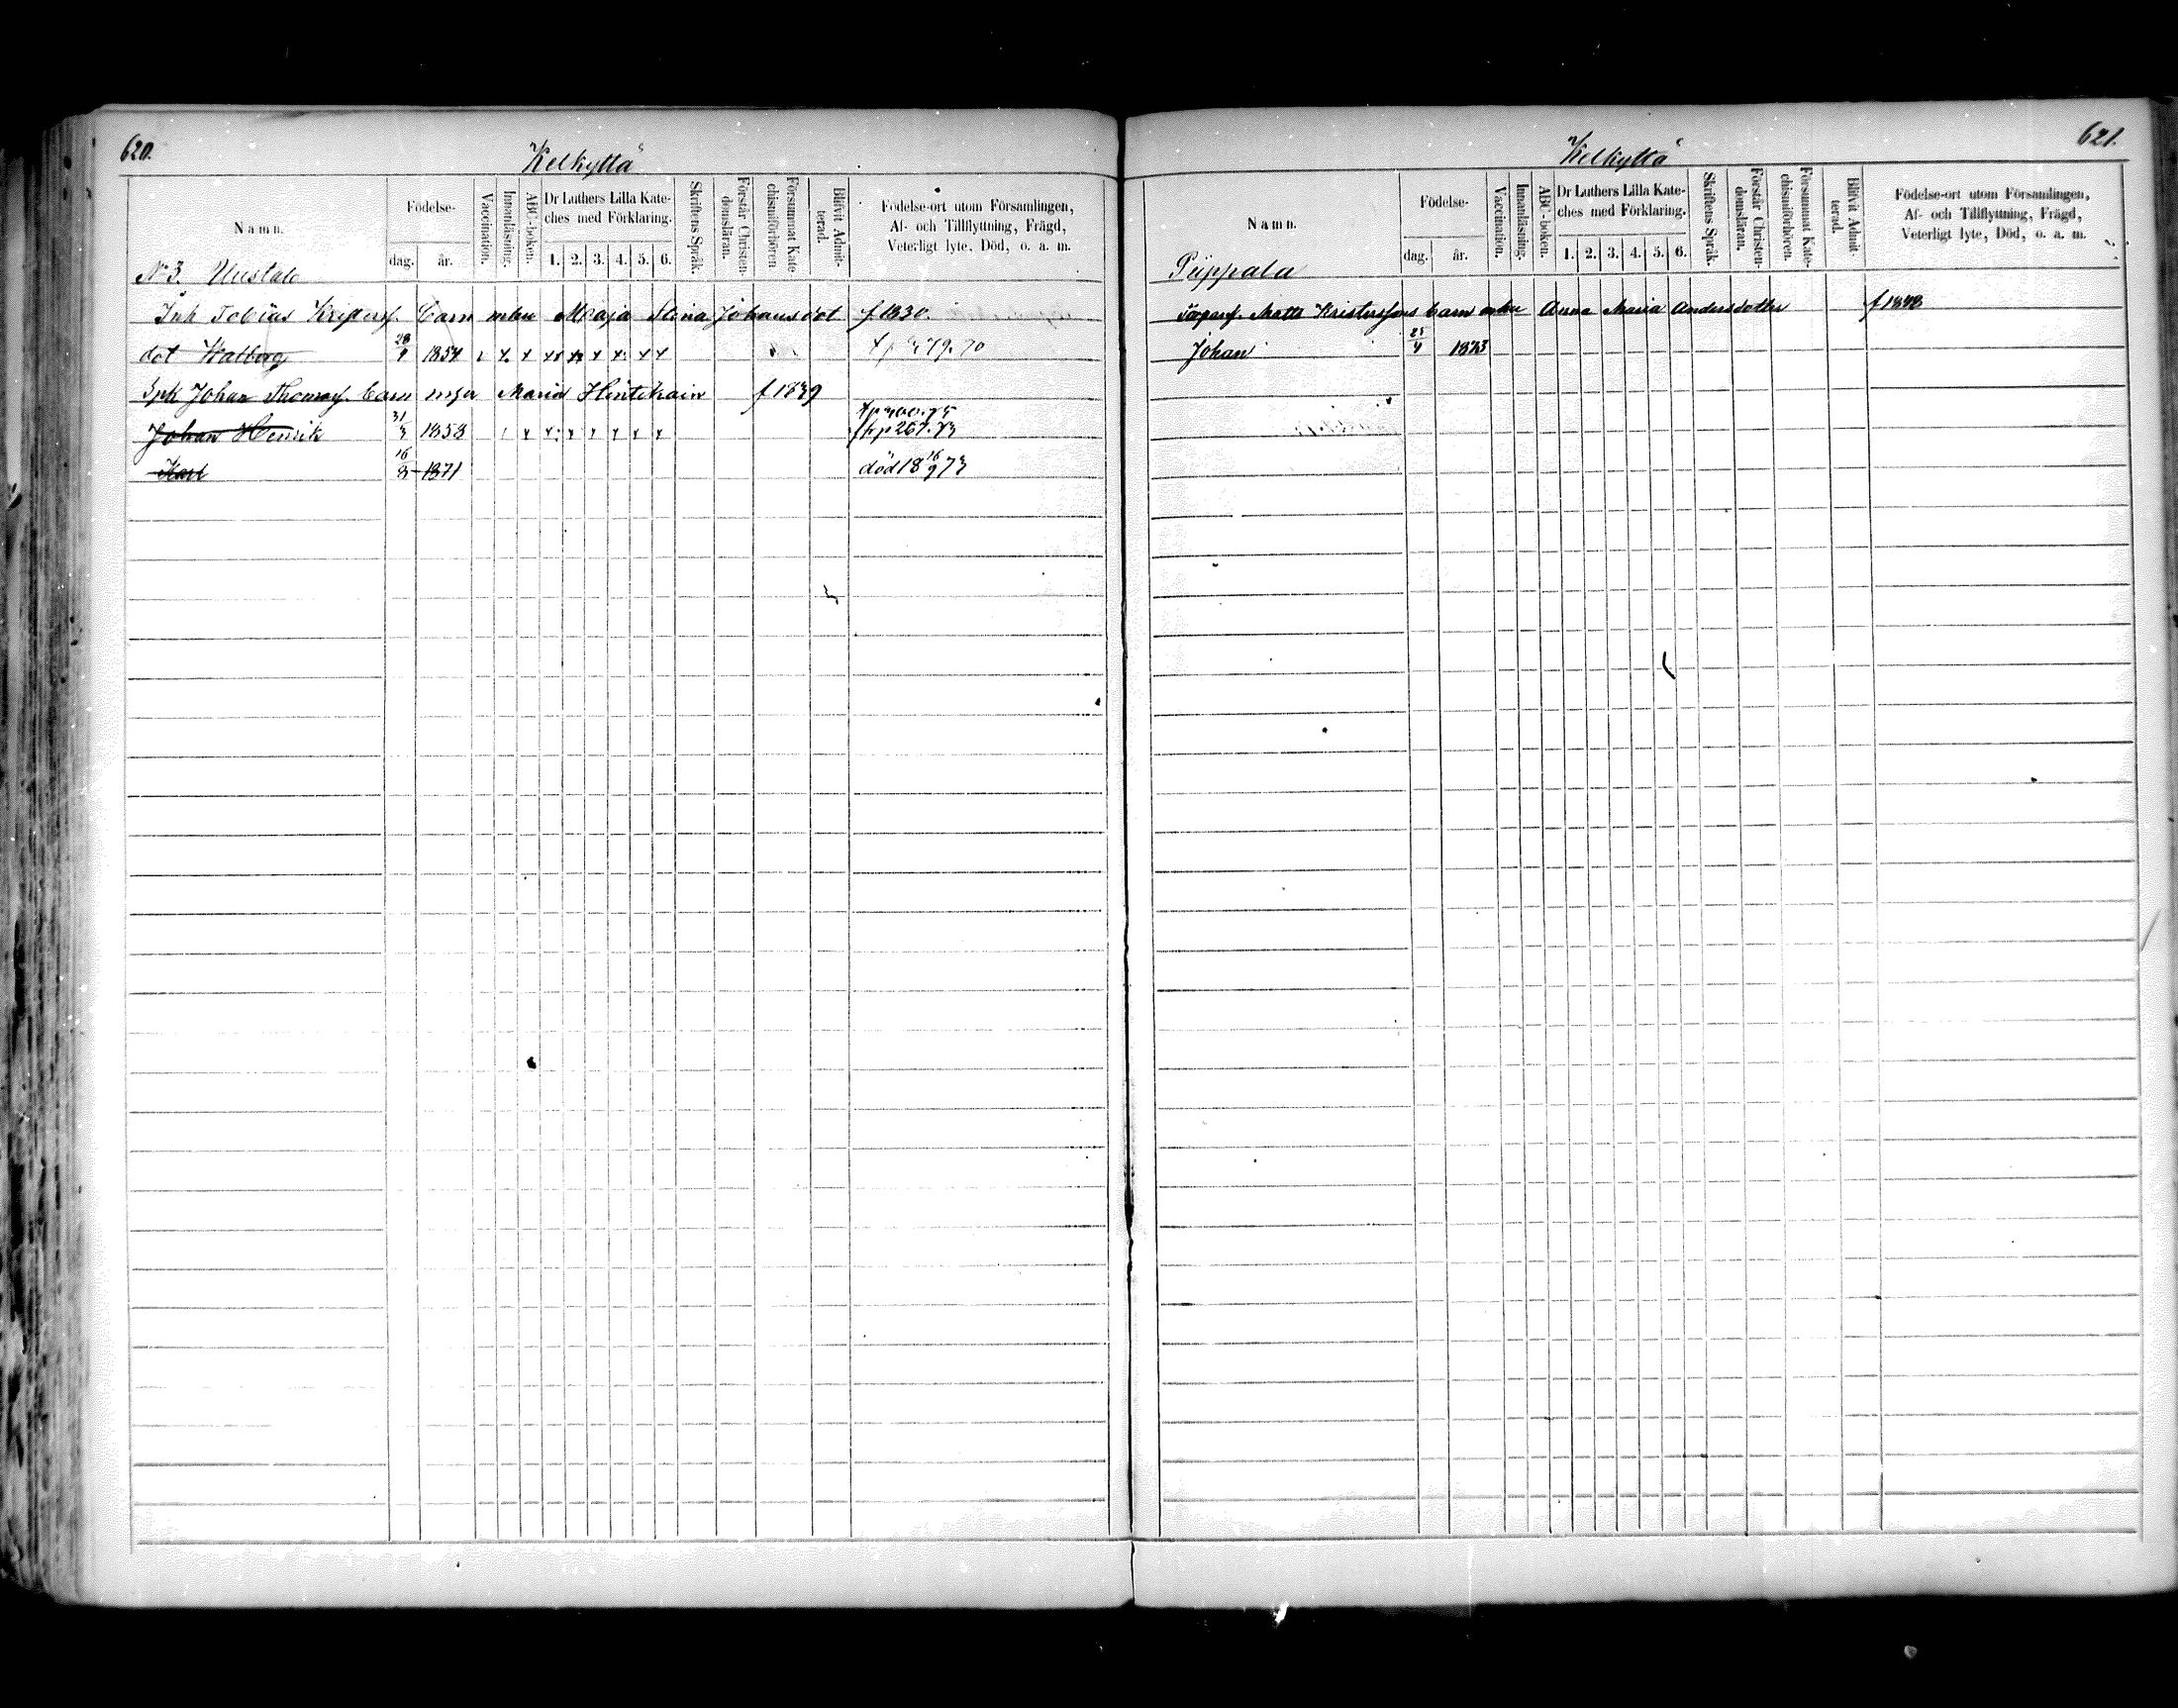 620.
Kelkyttä
Namn.
Födelse-
dag.
år.
Vaccination.
Innanläsning.
ABC-boken.
Dr Luthers Lilla Kate-
ches med Förklaring.
1. 2. 3. 4. 5. 6.
Skriftens Språk.
Förstår Christen-
domsläran.
Försummat Kate-
chismiförhören
Blifvit Admit-
terad.
Födelse-ort utom Församlingen,
Af- och Tillflyttning, Frägd,
Veterligt lyte, Död, o. a. m.
No 3. Uustalo
Inh Tobias Kristersf. barn mhu Maja Stina Johansdot f. 1830.
dot Walborg 28/9 1854 x x x x x x x x 79.70
Johan Thomasf. barn Maria f 1839
Johan Henrik 31/3 1858 x x x x x x x fp 267.73
Karl 16/8 1871 död 18 16/9 73
621.
Kelkyttä
Namn.
Födelse-
dag.
år.
Vaccination.
Innanläsning.
ABC-boken.
Dr Luthers Lilla Kate-
ches med Förklaring.
1. 2. 3. 4. 5. 6.
Skriftens Språk.
Förstår Christen-
domsläran.
Försummat Kate-
chismiförhören.
Blifvit Admit-
terad.
Födelse-ort utom Församlingen,
Af- och Tillflyttning, Frägd,
Veterligt lyte, Död, o. a. m.
Piippala
Torparf. Matts Kristerssons barn mhu Anna Maria Andersdotter f 1848
Johan 25/4 1873